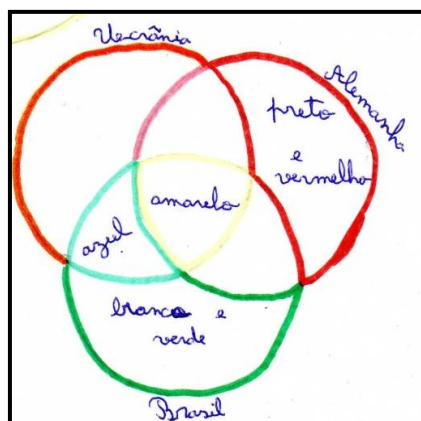 Ucrânia
Alemanha
preto
e
vermelho
amarelo
azul
branco e
verde
Brasil